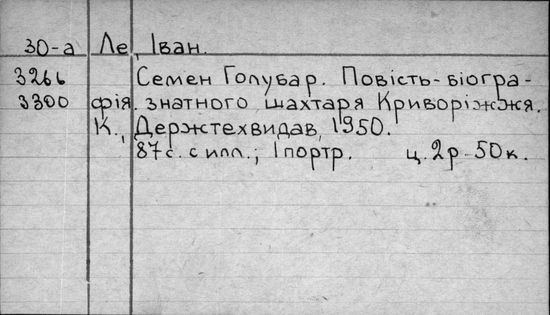 30-а Ле, Іван.
3266 Семен Голубар. Повість-біогра-
3300 фія. знатного шахтаря Криворіжжя.
К., Держтехвидав, 1950.
87с. с илл.; 1 портр. ц. 2р-50к.